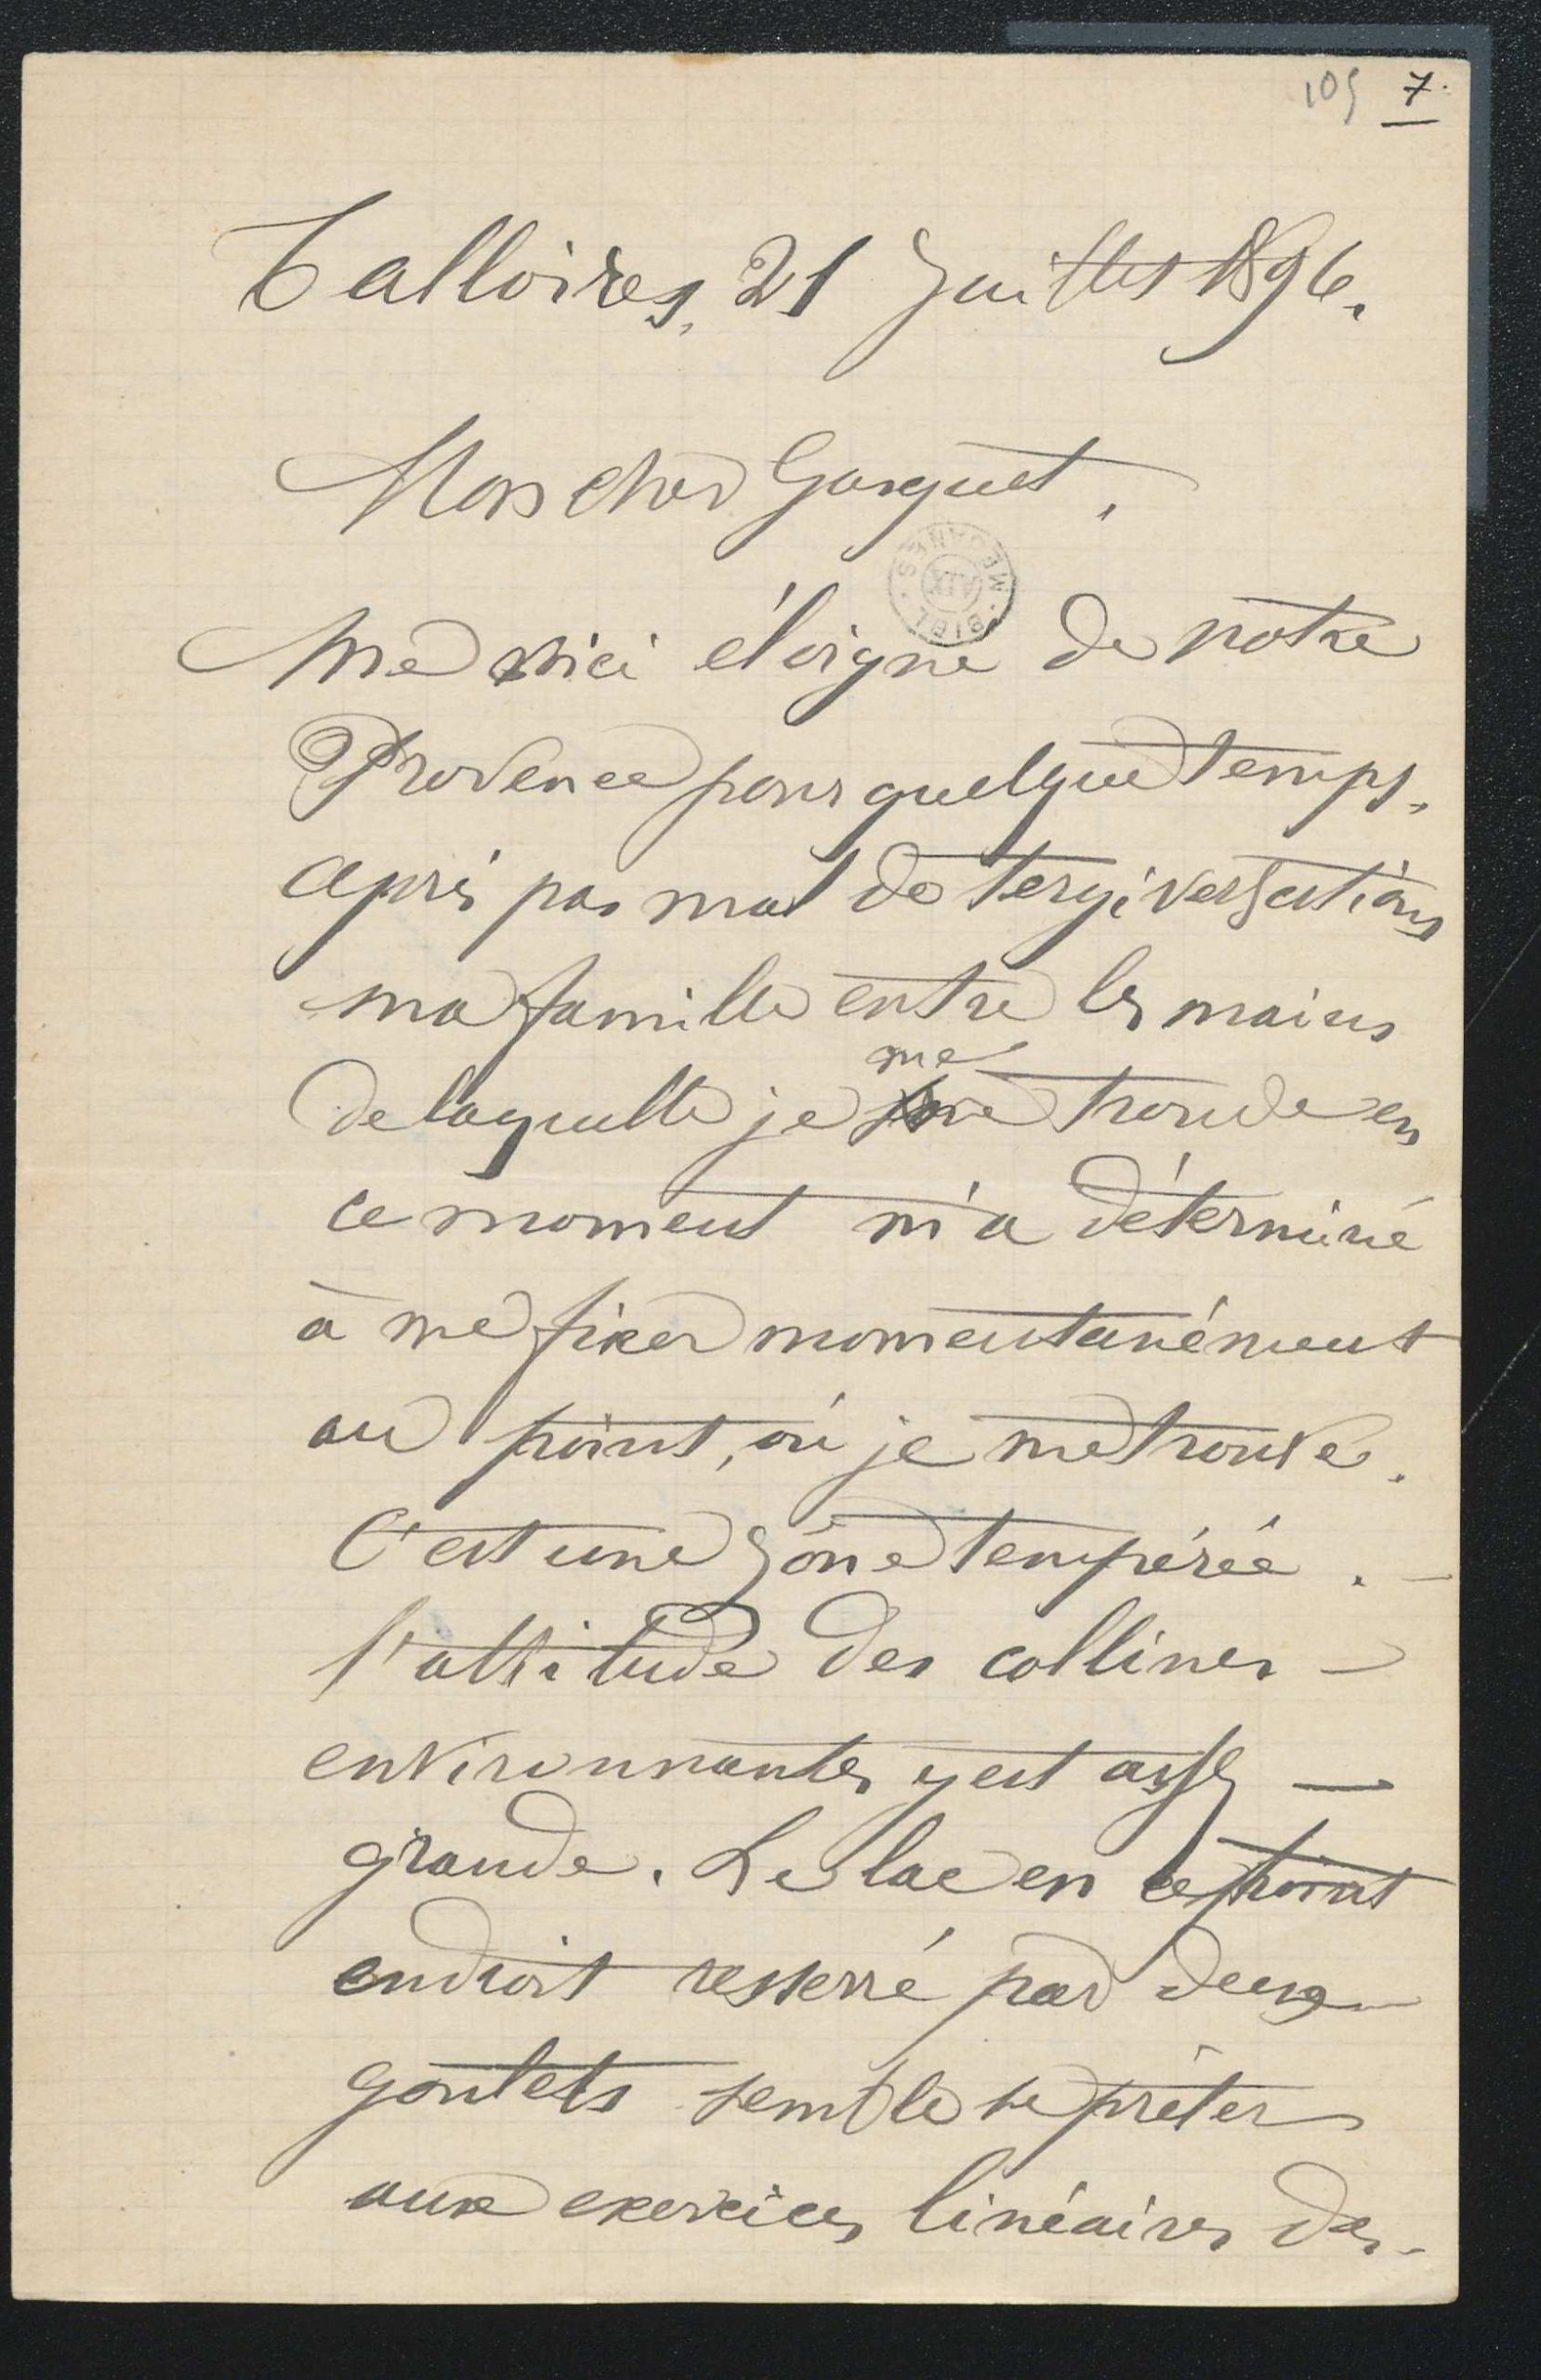 105 7.
Talloires, 21 Juillet 1896.
Mon cher Gasquet,
Me voici éloigné de notre
Provence pour quelque temps.
Après pas mal de tergiversations
ma famille entre les mains
me
de laquelle je trouve en
ce moment m'a déterminé
à me fixer momentanément
au point, où je me trouve.
C'est une zône tempérée. -
l'altitude des collines -
environnantes y est assez -
grande. Le lac en ce point
endroit resserré par deux
goulets semble se prêter
aux exercices linéaires des
MEJANES
AIX
BIBL